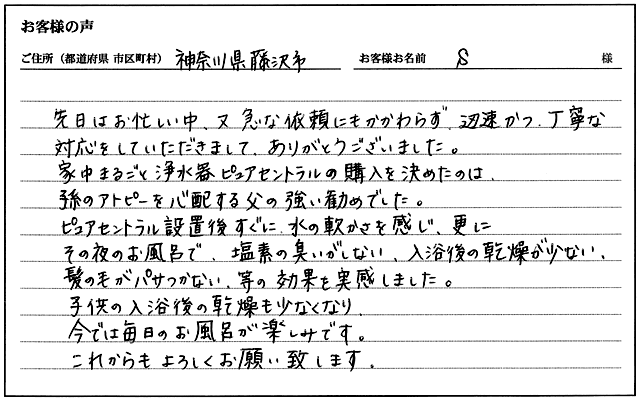 お客様の声
ご住所（都道府県 市区町村） 神奈川県藤沢市 お客様お名前 S 様
先日はお忙い中、又急な依頼にもかかわらず、迅速かつ、丁寧な
対応をしていただきまして、ありがとうございました。
家中まるごと浄水器ピュアセントラルの購入を決めたのは、
孫のアトピーを心配する父の強い勧めでした。
ピュアセントラル設置後すぐに、水の軟かさを感じ、更に
その夜のお風呂で、塩素の臭いがしない、入浴後の乾燥が少ない、
髪の毛がパサつかない、等の効果を実感しました。
子供の入浴後の乾燥も少なくなり、
今では毎日のお風呂が楽しみです。
これからもよろしくお願い致します。